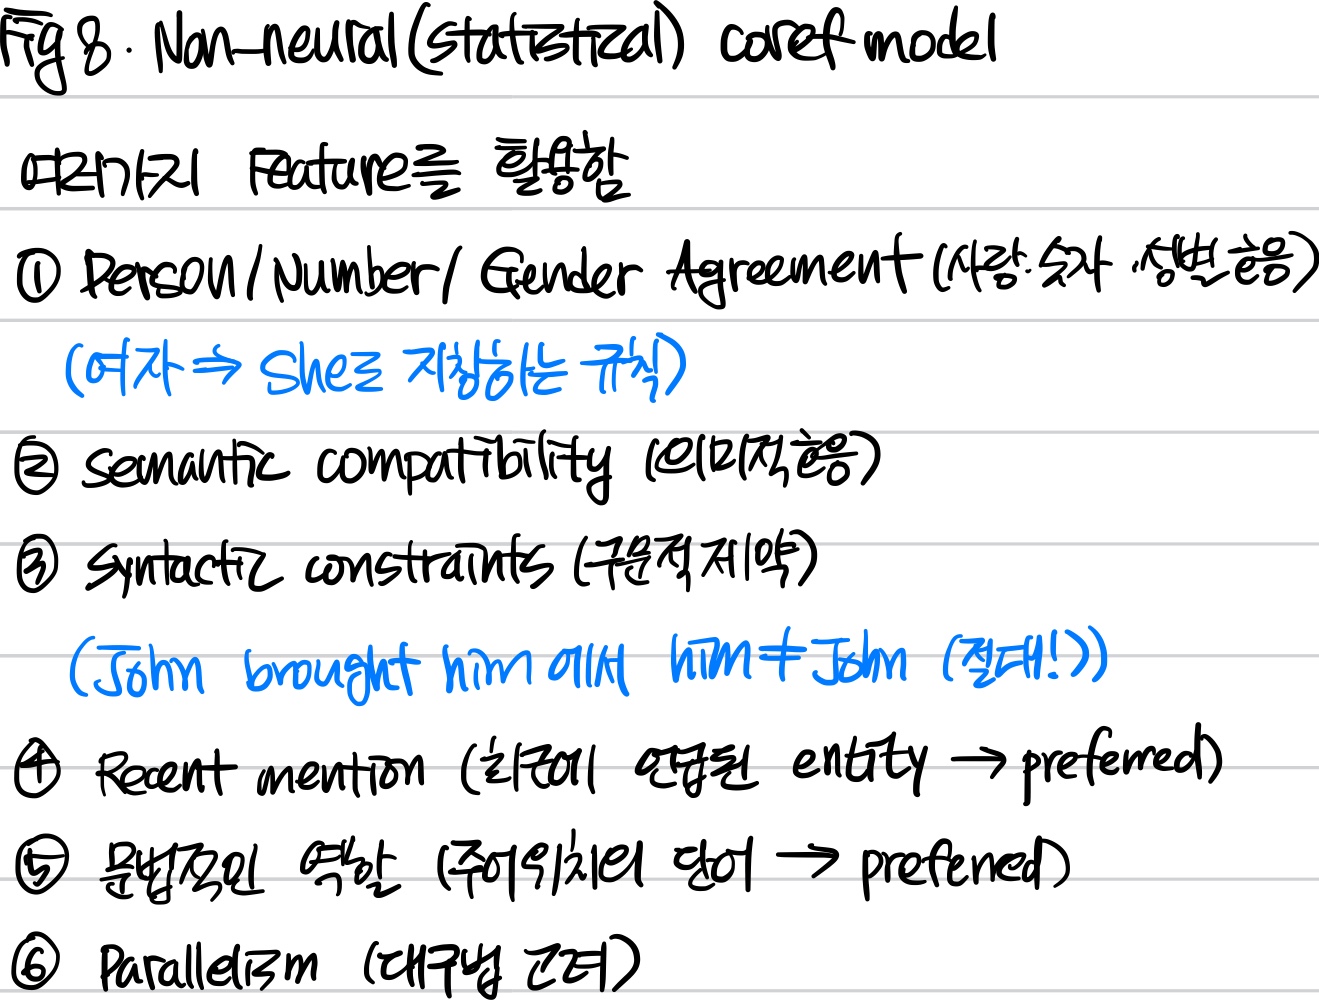 Fig 8. Non-neural(statistical) coref model
여러가지 Feature를 활용함
① Person/Number/Gender Agreement (사람.숫자.성별 호응)
(여자 ⇒ She로 지칭하는 규칙)
② Semantic compatibility (의미적 호응)
③ Syntactic constraints (구문적 제약)
(John brought him 에서 him ≠ John (절대!))
④ Recent mention (최근에 언급된 entity → preferred)
⑤ 문법적인 역할 (주어위치의 단어 → preferred)
⑥ Parallelism (대구법 고려)